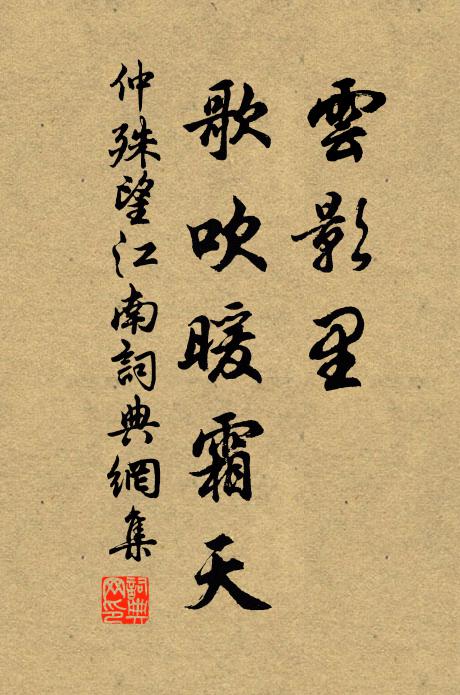 雲影里
歌吹暖霜天
仲殊望江南詞典網集
詞典
网印